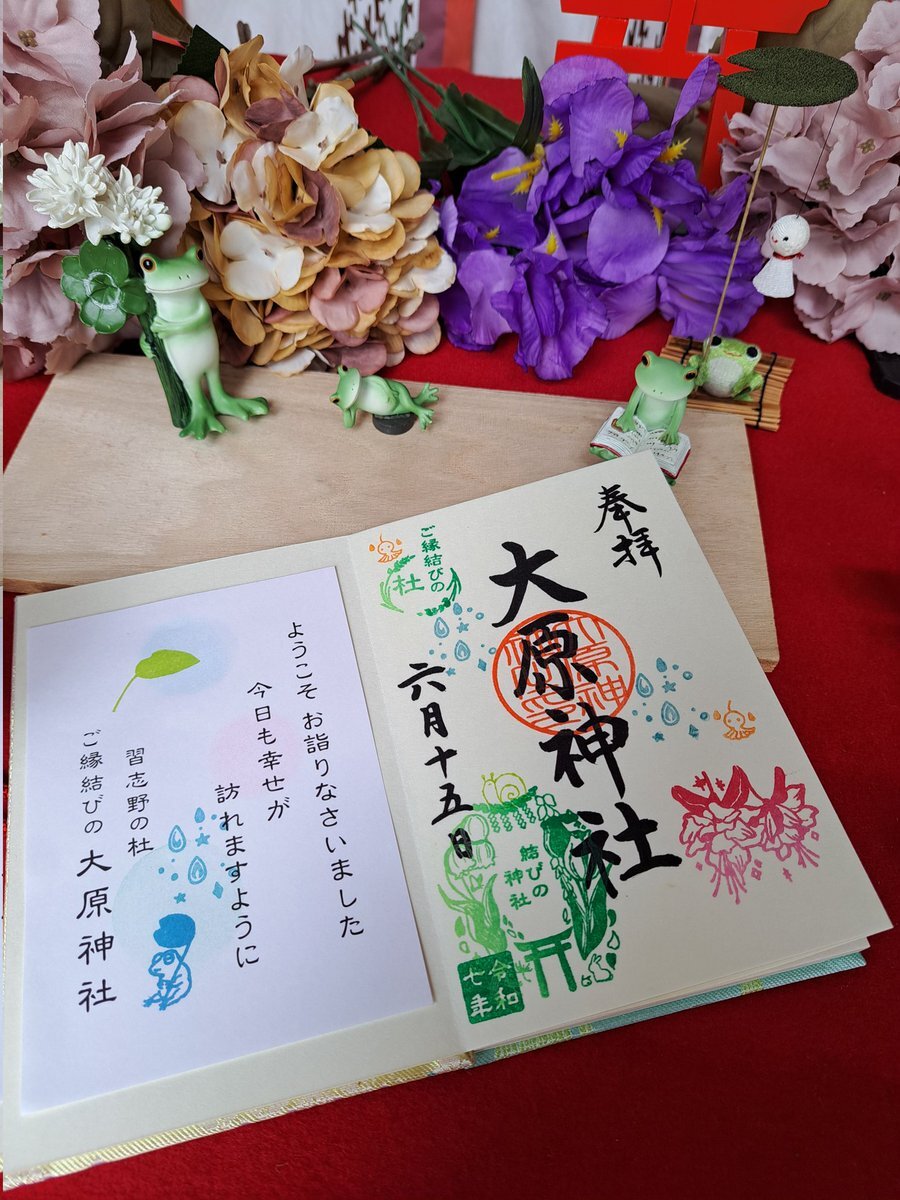 奉拝
大原神社
六月十五日
ご縁結びの
社
結びの
神社
令和
七年
ようこそ お詣りなさいました
今日も幸せが
訪れますように
習志野の杜
ご縁結びの 大原神社